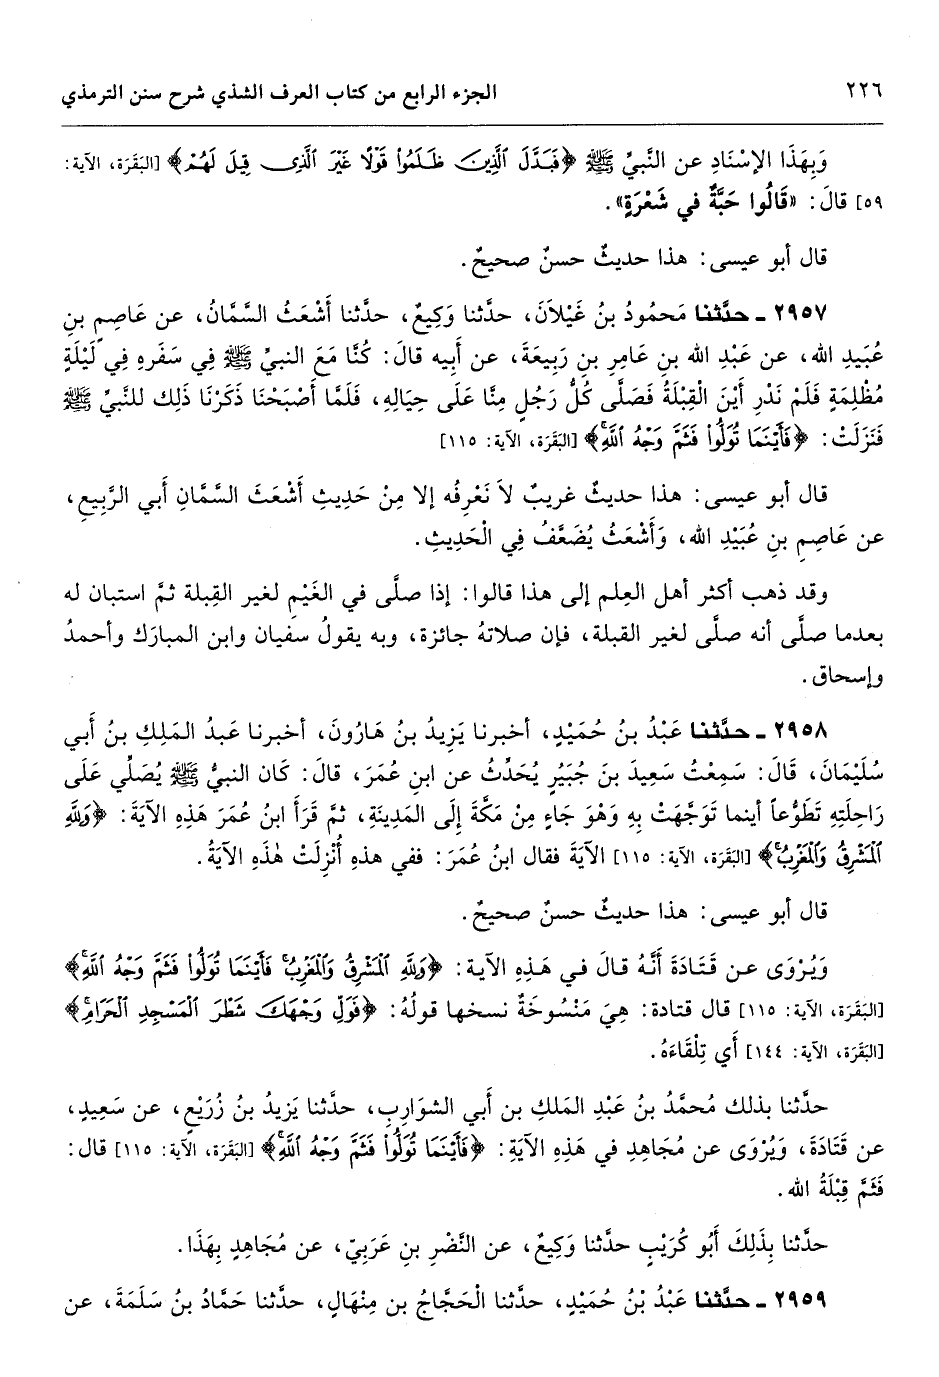 ٢٢٦ الجزء الرابع من كتاب العرف الشذي شرح سنن الترمذي
وَبِهَذَا الإسْنَادِ عن النَّبيِّ ﷺ ﴿فَبَدَّلَ ٱلَّذِينَ ظَلَمُوا۟ قَوْلًا غَيْرَ ٱلَّذِى قِيلَ لَهُمْ﴾ [البَقَرَة، الآية:
٥٩] قالَ: «قَالُوا حَبَّةٌ في شَعْرَةٍ».
قال أبو عيسى: هذا حديثٌ حسنٌ صحيحٌ.
٢٩٥٧ ـ حدَّثنا مَحمُودُ بنُ غَيْلاَنَ، حدَّثنا وَكِيعٌ، حدَّثنا أَشْعَثُ السَّمَّانُ، عن عَاصِمِ بنِ
عُبَيدِ الله، عن عَبْدِ الله بنِ عَامِرِ بنِ رَبِيعَةَ، عن أَبِيه قالَ: كُنَّا مَعَ النبيِّ ﷺ فِي سَفَرِهِ فِي لَيْلَةٍ
مُظْلِمَةٍ فَلَمْ نَدْرِ أَيْنَ الْقِبْلَةُ فَصَلَّى كُلُّ رَجُلٍ مِنَّا عَلَى حِيَالِهِ، فَلَمَّا أَصْبَحْنَا ذَكَرْنَا ذَلِك للنَّبيِّ ﷺ
فَنَزَلَتْ: ﴿فَأَيْنَمَا تُوَلُّوا۟ فَثَمَّ وَجْهُ ٱللَّهِۚ﴾ [البَقَرَة، الآية: ١١٥]
قال أبو عيسى: هذا حديثٌ غريبٌ لاَ نَعْرِفُه إلا مِنْ حَدِيثِ أَشْعَثَ السَّمَّانِ أَبي الرَّبِيعِ،
عن عَاصِمِ بنِ عُبَيْدِ الله، وَأَشْعَثُ يُضَعَّفُ فِي الْحَدِيثِ.
وقد ذهب أكثر أهل العِلم إلى هذا قالوا: إذا صلَّى في الغَيْمِ لغير القِبلة ثمَّ استبان له
بعدما صلَّى أنه صلَّى لغير القبلة، فإن صلاتهُ جائزة، وبه يقولُ سفيان وابن المبارَك وأحمدُ
وإسحاق.
٢٩٥٨ ـ حدَّثنا عَبْدُ بنُ حُمَيْدٍ، أخبرنا يَزِيدُ بنُ هَارُونَ، أخبرنا عَبدُ المَلِكِ بنُ أَبي
سُلَيْمَانَ، قَالَ: سَمِعْتُ سَعِيدَ بنَ جُبَيْرٍ يُحَدِّثُ عن ابنِ عُمَرَ، قالَ: كَان النبيُّ ﷺ يُصَلِّي عَلَى
رَاحِلَتِهِ تَطَوُّعاً أينما تَوَجَّهَتْ بِهِ وَهْوَ جَاءٍ مِنْ مَكَّةَ إلَى المَدِينَةِ، ثمَّ قَرَأَ ابنُ عُمَرَ هَذِهِ الآيَةَ: ﴿وَلِلَّهِ
ٱلْمَشْرِقُ وَٱلْمَغْرِبُۚ﴾ [البَقَرَة، الآية: ١١٥] الآيَةَ فقال ابنُ عُمَرَ: ففي هذهِ أُنْزِلَتْ هٰذَهِ الآيَةُ.
قال أبو عيسى: هذا حديثٌ حسنٌ صحيحٌ.
وَيُرْوَى عن قَتَادَةَ أَنَّهُ قالَ في هَذِهِ الآية: ﴿وَلِلَّهِ ٱلْمَشْرِقُ وَٱلْمَغْرِبُۚ فَأَيْنَمَا تُوَلُّوا۟ فَثَمَّ وَجْهُ ٱللَّهِۚ﴾
[البَقَرَة، الآية: ١١٥] قال قتادة: هِيَ مَنْسُوخَةٌ نسخها قولُهُ: ﴿فَوَلِّ وَجْهَكَ شَطْرَ ٱلْمَسْجِدِ ٱلْحَرَامِۚ﴾
[البَقَرَة، الآية: ١٤٤] أَي تِلْقَاءَهُ.
حدَّثنا بذلك مُحمَّدُ بنُ عَبْدِ المَلكِ بن أَبي الشوَارِبِ، حدَّثنا يَزيدُ بنُ زُرَيْعٍ، عن سَعِيدٍ،
عن قَتَادَةَ، وَيُرْوَى عن مُجَاهِدِ في هَذِهِ الآيَةِ: ﴿فَأَيْنَمَا تُوَلُّوا۟ فَثَمَّ وَجْهُ ٱللَّهِۚ﴾ [البَقَرَة، الآية: ١١٥] قال:
فَثَمَّ قِبْلَةُ الله.
حدَّثنا بِذَلِكَ أَبُو كُرَيْبٍ حدَّثنا وَكِيعٌ، عن النَّضْرِ بنِ عَرَبيّ، عن مُجَاهِدٍ بِهَذَا.
٢٩٥٩ ـ حدَّثنا عَبْدُ بْنُ حُمَيْدٍ، حدَّثنا الْحَجَّاجُ بن مِنْهَالٍ، حدَّثنا حَمَّادُ بنُ سَلَمَةَ، عن